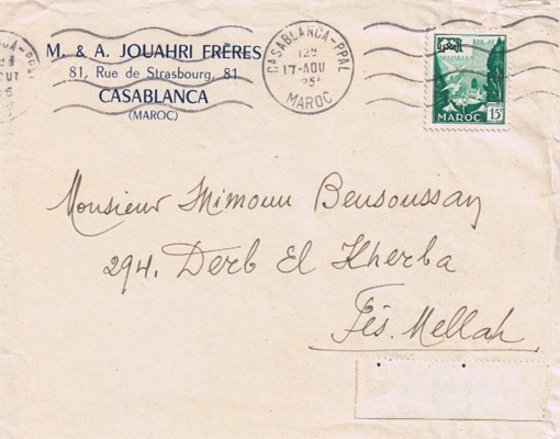 M. & A. JOUAHRI FRÈRES
81, Rue de Strasbourg, 81
CASABLANCA
(MAROC)
CASABLANCA-PPAL
17-AOU
MAROC
MAROC 15F
Monsieur Mimoun Bensoussan
294. Derb El Kherba
Fès. Mellah